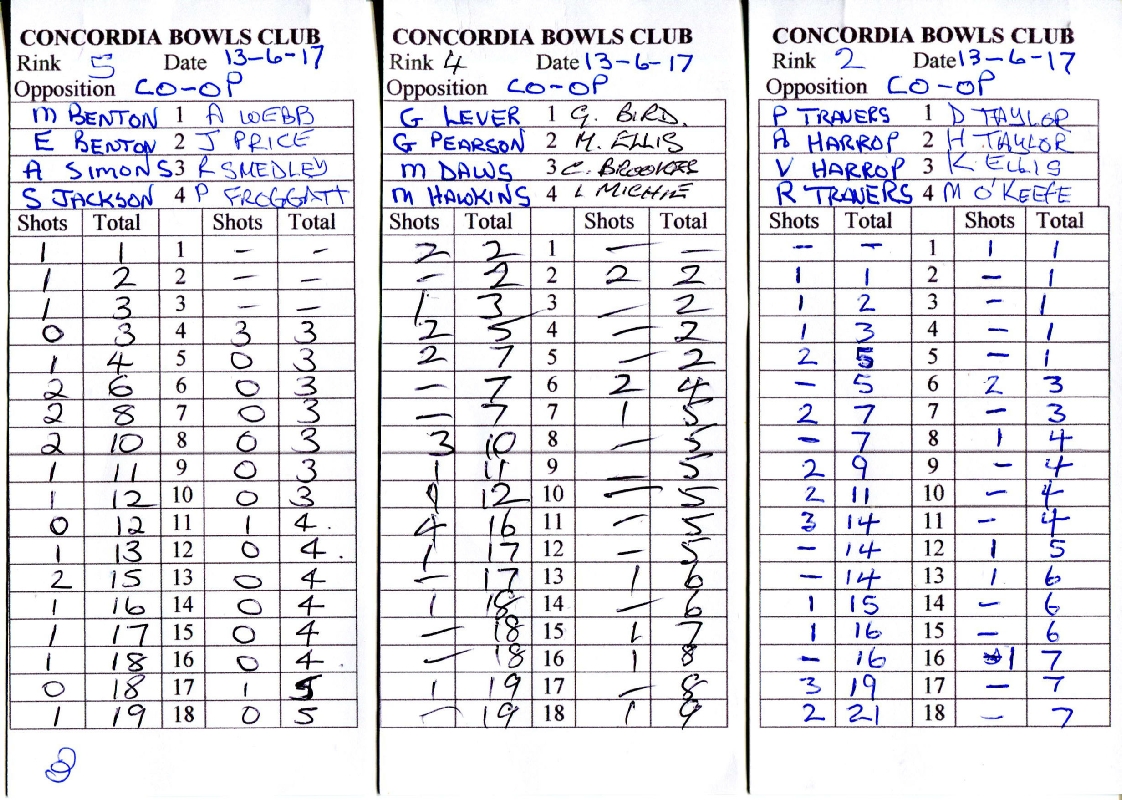 CONCORDIA BOWLS CLUB
Rink 5 Date 13-6-17
Opposition CO-OP
M BENTON 1 A WEBB
E BENTON 2 J PRICE
A SIMONS 3 R SMEDLEY
S JACKSON 4 P FROGGATT
Shots Total Shots Total
1 1 1 - -
1 2 2 - -
1 3 3 - -
0 3 4 3 3
1 4 5 0 3
2 6 6 0 3
2 8 7 0 3
2 10 8 0 3
1 11 9 0 3
1 12 10 0 3
0 12 11 1 4.
1 13 12 0 4.
2 15 13 0 4
1 16 14 0 4
1 17 15 0 4
1 18 16 0 4.
0 18 17 1 5
1 19 18 0 5
CONCORDIA BOWLS CLUB
Rink 4 Date 13-6-17
Opposition CO-OP
G LEVER 1 G. BIRD.
G PEARSON 2 M. ELLIS
M DAWS 3 C. BROOKES
M HAWKINS 4 L MICHIE
Shots Total Shots Total
2 2 1 - -
- 2 2 2 2
1 3 3 - 2
2 5 4 - 2
2 7 5 - 2
- 7 6 2 4
- 7 7 1 5
3 10 8 - 5
1 11 9 - 5
1 12 10 - 5
4 16 11 - 5
1 17 12 - 5
- 17 13 1 6
1 18 14 - 6
- 18 15 1 7
- 18 16 1 8
1 19 17 - 8
- 19 18 1 9
CONCORDIA BOWLS CLUB
Rink 2 Date 13-6-17
Opposition CO-OP
P TRAVERS 1 D TAYLOR
A HARROP 2 H TAYLOR
V HARROP 3 K ELLIS
R TRAVERS 4 M O'KEEFE
Shots Total Shots Total
- - 1 1 1
1 1 2 - 1
1 2 3 - 1
1 3 4 - 1
2 5 5 - 1
- 5 6 2 3
2 7 7 - 3
- 7 8 1 4
2 9 9 - 4
2 11 10 - 4
3 14 11 - 4
- 14 12 1 5
- 14 13 1 6
1 15 14 - 6
1 16 15 - 6
- 16 16 1 7
3 19 17 - 7
2 21 18 - 7